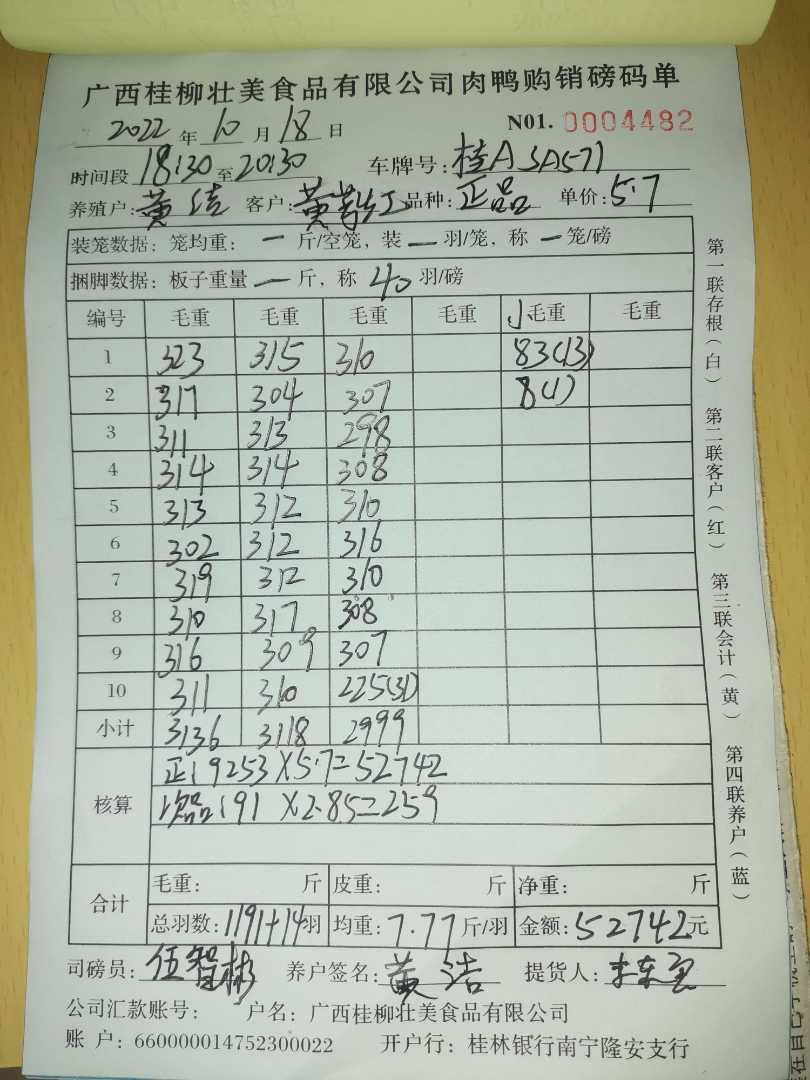 广西桂柳壮美食品有限公司肉鸭购销磅码单
2022年10月18日 N01. 0004482
时间段18:30至20:30 车牌号:桂A3A571
养殖户:黄浩 客户: 品种:正品 单价:5.7
装笼数据: 笼均重: 一 斤/空笼, 装一羽/笼, 称一笼/磅
捆脚数据: 板子重量一斤, 称40羽/磅
编号 毛重 毛重 毛重 毛重 小毛重 毛重
1 323 315 310 83(13)
2 317 304 307 8(1)
3 311 313 298
4 314 314 308
5 313 312 310
6 302 312 316
7 319 312 310
8 310 317 308
9 316 309 307
10 311 310 225(31)
小计 3136 3118 2999
核算 正:9253×5.7=52742
次品:91 ×2.85=259
合计 毛重: 斤 皮重: 斤 净重: 斤
总羽数:1191+14羽 均重:7.77斤/羽 金额:52742元
司磅员:伍智彬 养户签名:黄浩 提货人:
公司汇款账号: 户名: 广西桂柳壮美食品有限公司
账 户: 660000014752300022 开户行: 桂林银行南宁隆安支行
第一联存根(白) 第二联客户(红) 第三联会计(黄) 第四联养户(蓝)